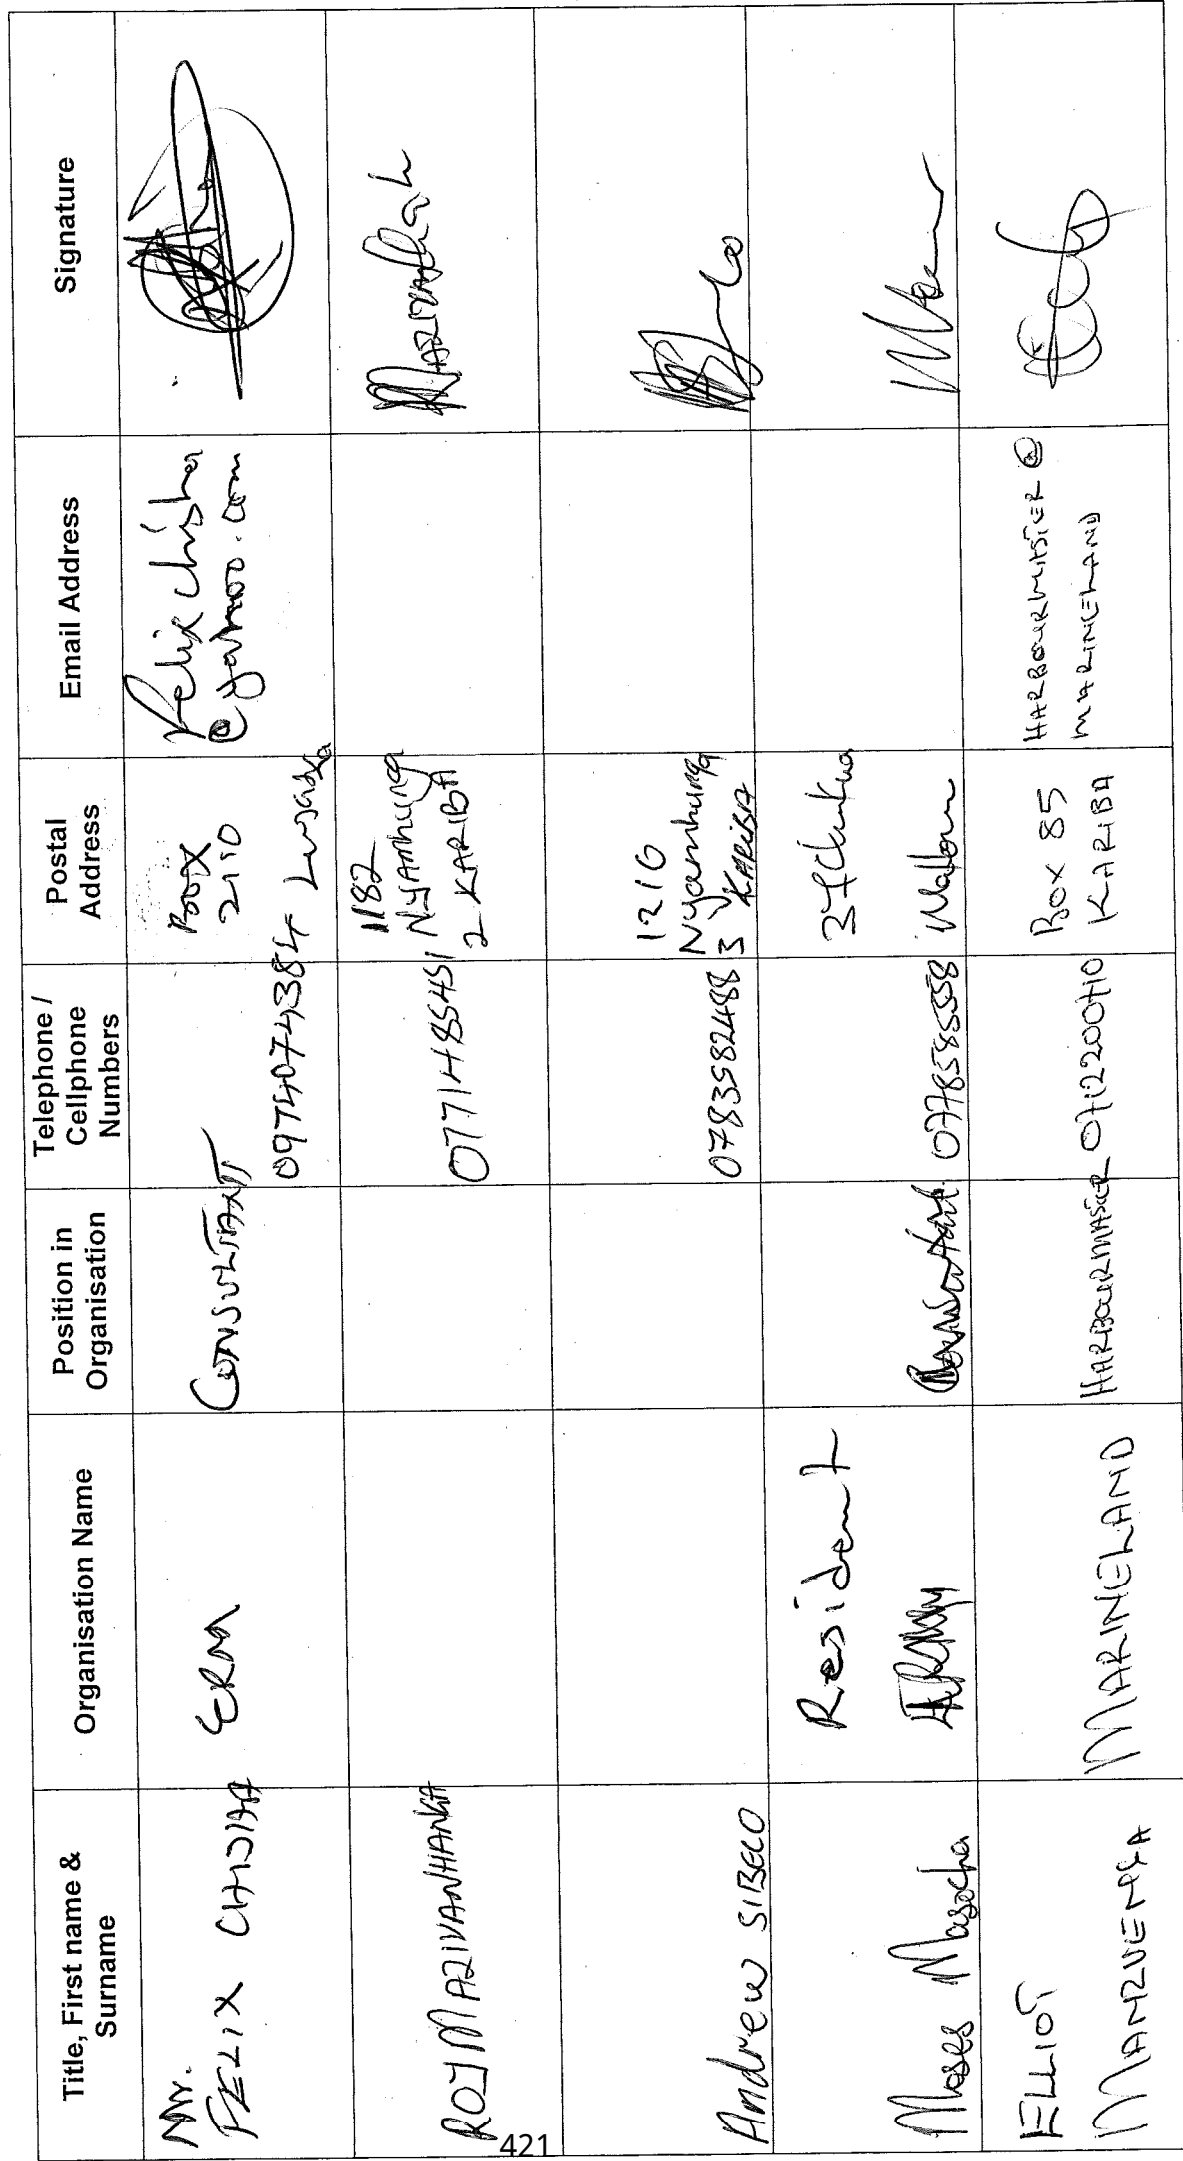 Title, First name &
Surname
Organisation Name
Position in
Organisation
Telephone /
Cellphone
Numbers
Postal
Address
Email Address
Signature
Mr.
FELIX CHISHA
ERM
CONSULTANT
0974074384
Box
2110
Lusaka
felixchisha
@yahoo.com
ROY MAZIVANHANGA
0771485451
1182
NYAMhunga
2 KARIBA
Andrew SIBECO
0783582488
1216
Nyamhunga
3 KARIBA
Moses Masocha
Resident
0778585558
ELLIOT
MANZVENGA
MARINELAND
HARBOURMASTER
0712200710
Box 85
KARIBA
HARBOURMASTER @
MARINELAND
421